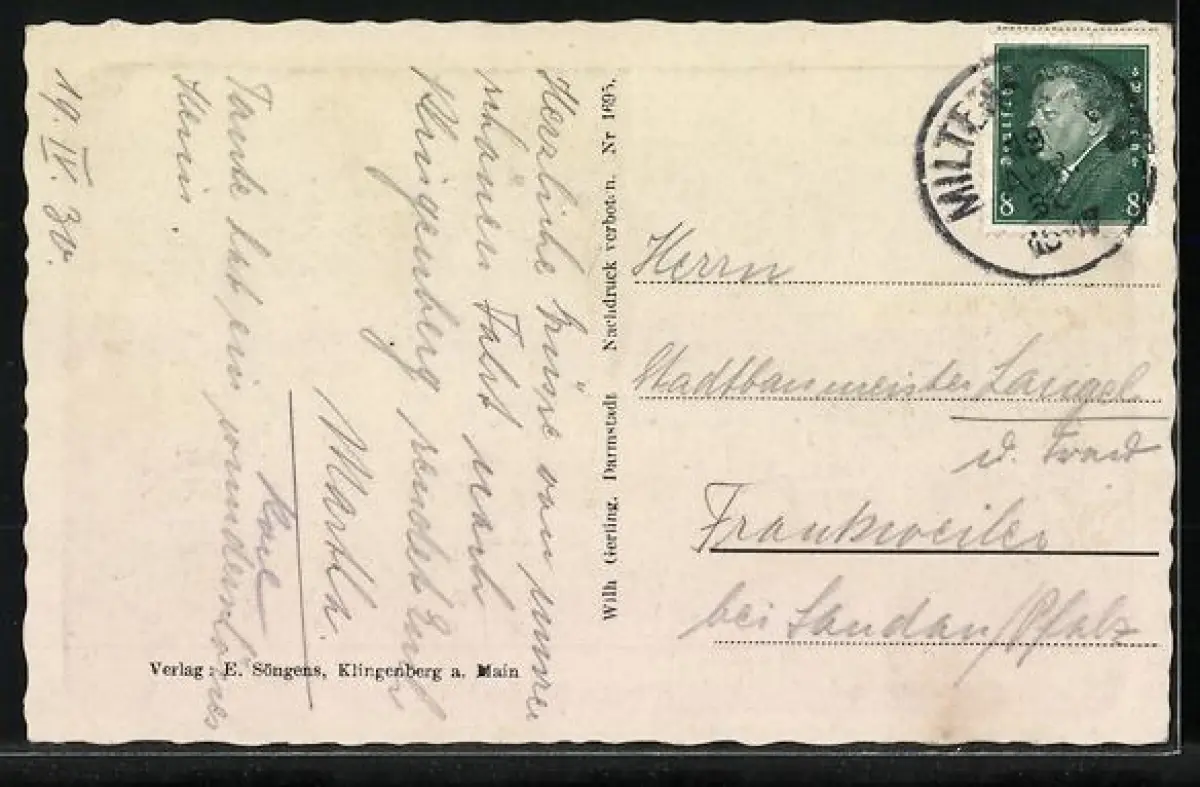 19. IV. 30.
Herzliche Grüße von unserer
schönen Fahrt nach
Klingenberg sendet Euch
Martha.
Tante hat ein wunderschönes
Heim.
Verlag: E. Söngens, Klingenberg a. Main
Wilh. Gerling, Darmstadt Nachdruck verboten. Nr 1695.
MILTEN
19
10-17
Deutsches Reich
8 8
Herrn
Stadtbaumeister Langel
u. Frau
Frankweiler
bei Landau/Pfalz